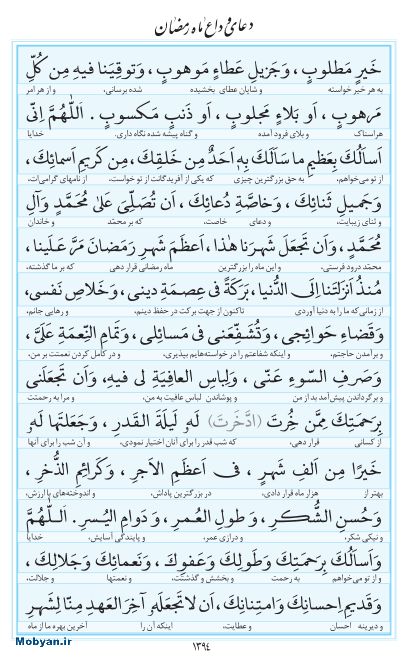 دعای وداع ماه رمضان
خَيرٍ مَطلوبٍ ، وَجَزيلِ عَطاءٍ مَوهوبٍ ، وَتوقِيَنا فيهِ مِن كُلِّ
به هر خیر خواسته و شایان عطای بخشیده شده برسانی، و از هر امر
مَرهوبٍ ، اَو بَلاءٍ مَجلوبٍ ، اَو ذَنبٍ مَكسوبٍ . اَللّٰهُمَّ اِنّى
هراسناک و بلای فرود آمده و گناه پیشه شده نگاه داری. خدایا
اَسأَلُكَ بِعَظيمِ ما سَأَلَكَ بِهِ اَحَدٌ مِن خَلقِكَ، مِن كَريمِ اَسمائِكَ،
از تو می‌خواهم، به حق بزرگترین چیزی که یکی از آفریدگانت از تو خواست، از نامهای گرامی‌ات،
وَجَميلِ ثَنائِكَ ، وَخاصَّةِ دُعائِكَ ، اَن تُصَلِّىَ عَلىٰ مُحَمَّدٍ وَآلِ
و ثنای زیبایت، و دعای خاصت، که بر محمّد و خاندان
مُحَمَّدٍ، وَاَن تَجعَلَ شَهرَنا هٰذا، اَعظَمَ شَهرِ رَمَضانَ مَرَّ عَلَينا،
محمّد درود فرستی، و این ماه را بزرگترین ماه رمضانی قرار دهی که بر ما گذشته،
مُنذُ اَنزَلتَنا اِلَى الدُّنيا، بَرَكَةً فى عِصمَةِ دينى، وَخَلاصِ نَفسى،
از زمانی که ما را به دنیا آوردی تاکنون از جهت برکت در حفظ دینم، و رهایی جانم،
وَقَضاءِ حَوائِجى، وَتُشَفِّعَنى فى مَسائِلى، وَتَمامِ النِّعمَةِ عَلَىَّ،
و برآمدن حاجتم، و اینکه شفاعتم را در خواسته‌هایم بپذیری، و در کامل کردن نعمتت بر من،
وَصَرفِ السّوءِ عَنّى ، وَلِباسِ العافِيَةِ لى فيهِ، وَاَن تَجعَلَنى
و برگرداندن پیش‌آمد بد از من و پوشاندن لباس عافیت به من، و مرا به رحمتت
بِرَحمَتِكَ مِمَّن خُرتَ (ادَّخَرتَ) لَهُ لَيلَةَ القَدرِ ، وَجَعَلتَها لَهُ
از کسانی قرار دهی، که شب قدر را برای آنان اختیار نمودی، و آن شب را برای آنها
خَيرًا مِن اَلفِ شَهرٍ ، فى اَعظَمِ الاَجرِ ، وَكَرائِمِ الذُّخرِ ،
بهتر از هزار ماه قرار دادی، در بزرگترین پاداش، و اندوخته‌های با ارزش،
وَحُسنِ الشُّكرِ ، وَ طولِ العُمرِ ، وَ دَوامِ اليُسرِ . اَللّٰهُمَّ
و نیکی شکر، و درازی عمر، و پایندگی آسایش. خدایا
وَاَسأَلُكَ بِرَحمَتِكَ وَطَولِكَ وَعَفوِكَ ، وَنَعمائِكَ وَجَلالِكَ ،
و از تو می‌خواهم به رحمت و بخشش و گذشتت، و نعمتها و جلالت،
وَقَديمِ اِحسانِكَ وَامتِنانِكَ، اَن لا تَجعَلَهُ آخِرَ العَهدِ مِنّا لِشَهرِ
و دیرینه احسان و عطایت، اینکه آن را آخرین بهره ما از ماه
Mobyan.ir
١٣٩٤